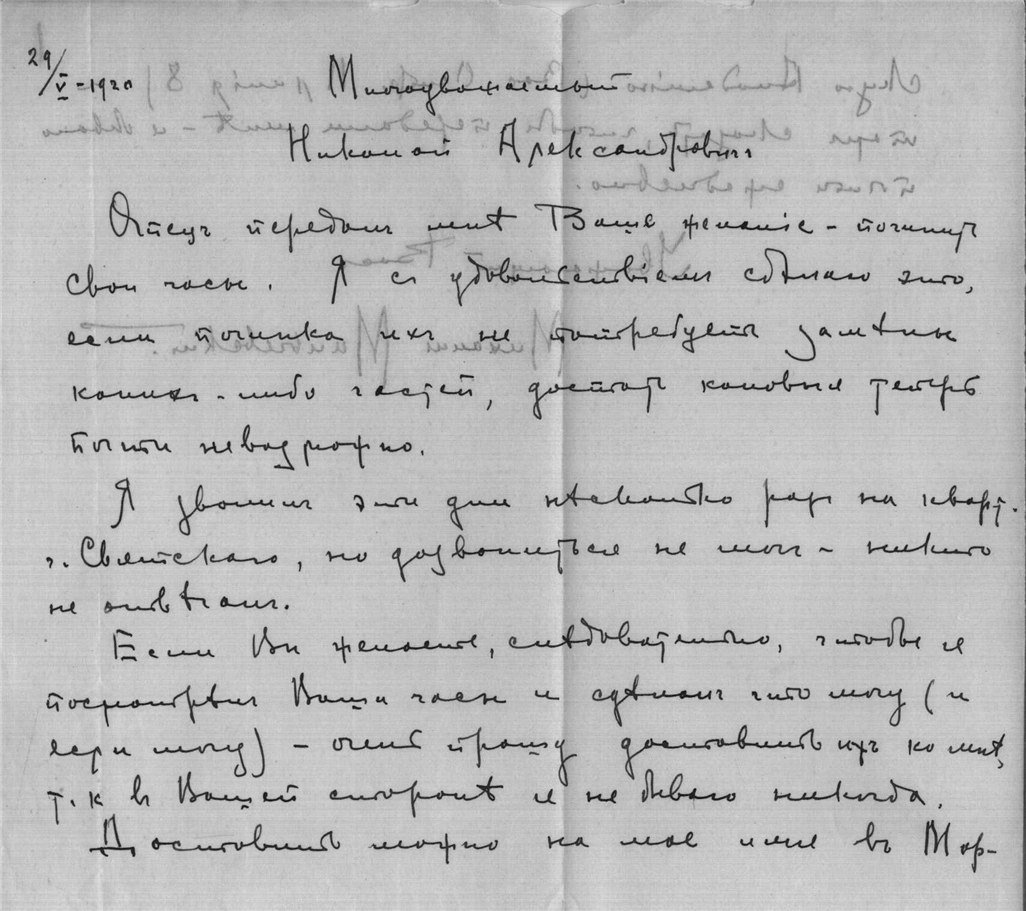 29/V-1920
Многоуважаемый
Николай Александровичъ
Отецъ передалъ мнѣ Ваше желаніе - починить
свои часы. Я съ удовольствіемъ сдѣлаю это,
если починка ихъ не потребуетъ замѣны
какихъ-либо частей, достать каковыя теперь
почти невозможно.
Я звонилъ эти дни нѣсколько разъ на кварт.
г. Святскаго, но дозвониться не могъ - никто
не отвѣчалъ.
Если Вы желаете, слѣдовательно, чтобы я
посмотрѣлъ Ваши часы и сдѣлалъ что могу (и
если могу) - очень прошу доставить ихъ ко мнѣ,
т.к въ Вашей сторонѣ я не бываю никогда.
Доставить можно на мое имя въ Мор-